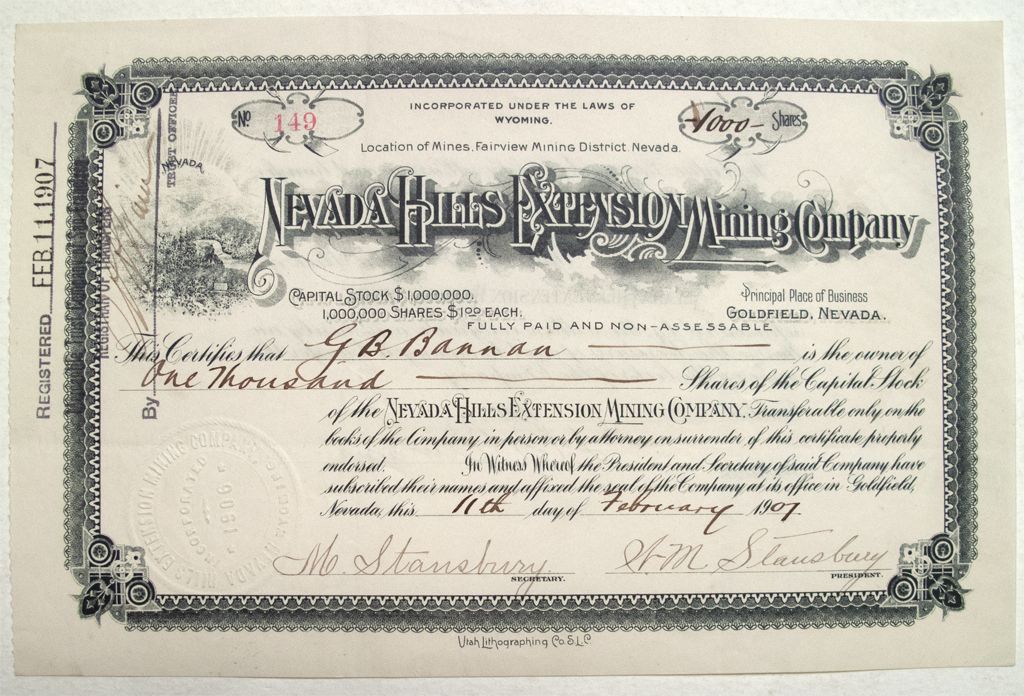 INCORPORATED UNDER THE LAWS OF
WYOMING.
No 149
1000 Shares
Location of Mines, Fairview Mining District, Nevada.
NEVADA
NEVADA HILLS EXTENSION Mining Company
CAPITAL STOCK $1,000,000.
1,000,000 SHARES $1.00 EACH.
Principal Place of Business
GOLDFIELD, NEVADA.
FULLY PAID AND NON-ASSESSABLE
This Certifies that G B. Bannan is the owner of
One Thousand Shares of the Capital Stock
of the NEVADA HILLS EXTENSION MINING COMPANY. Transferable only on the
books of the Company, in person or by attorney on surrender of this certificate properly
endorsed. In Witness Whereof the President and Secretary of said Company have
subscribed their names and affixed the seal of the Company at its office in Goldfield,
Nevada, this 11th day of February 1907
M. Stansbury SECRETARY.
W.M Stansbury PRESIDENT.
Utah Lithographing Co. S.L.C.
REGISTERED FEB. 11. 1907
REGISTRAR OF TRANSFERS
By
TRUST OFFICER
NEVADA HILLS EXTENSION MINING COMPANY
1906